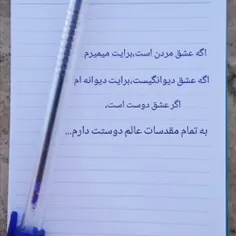 اگه عشق مردن است،برایت میمیرم
اگه عشق دیوانگیست،برایت دیوانه ام
اگر عشق دوست است،
به تمام مقدسات عالم دوستت دارم...